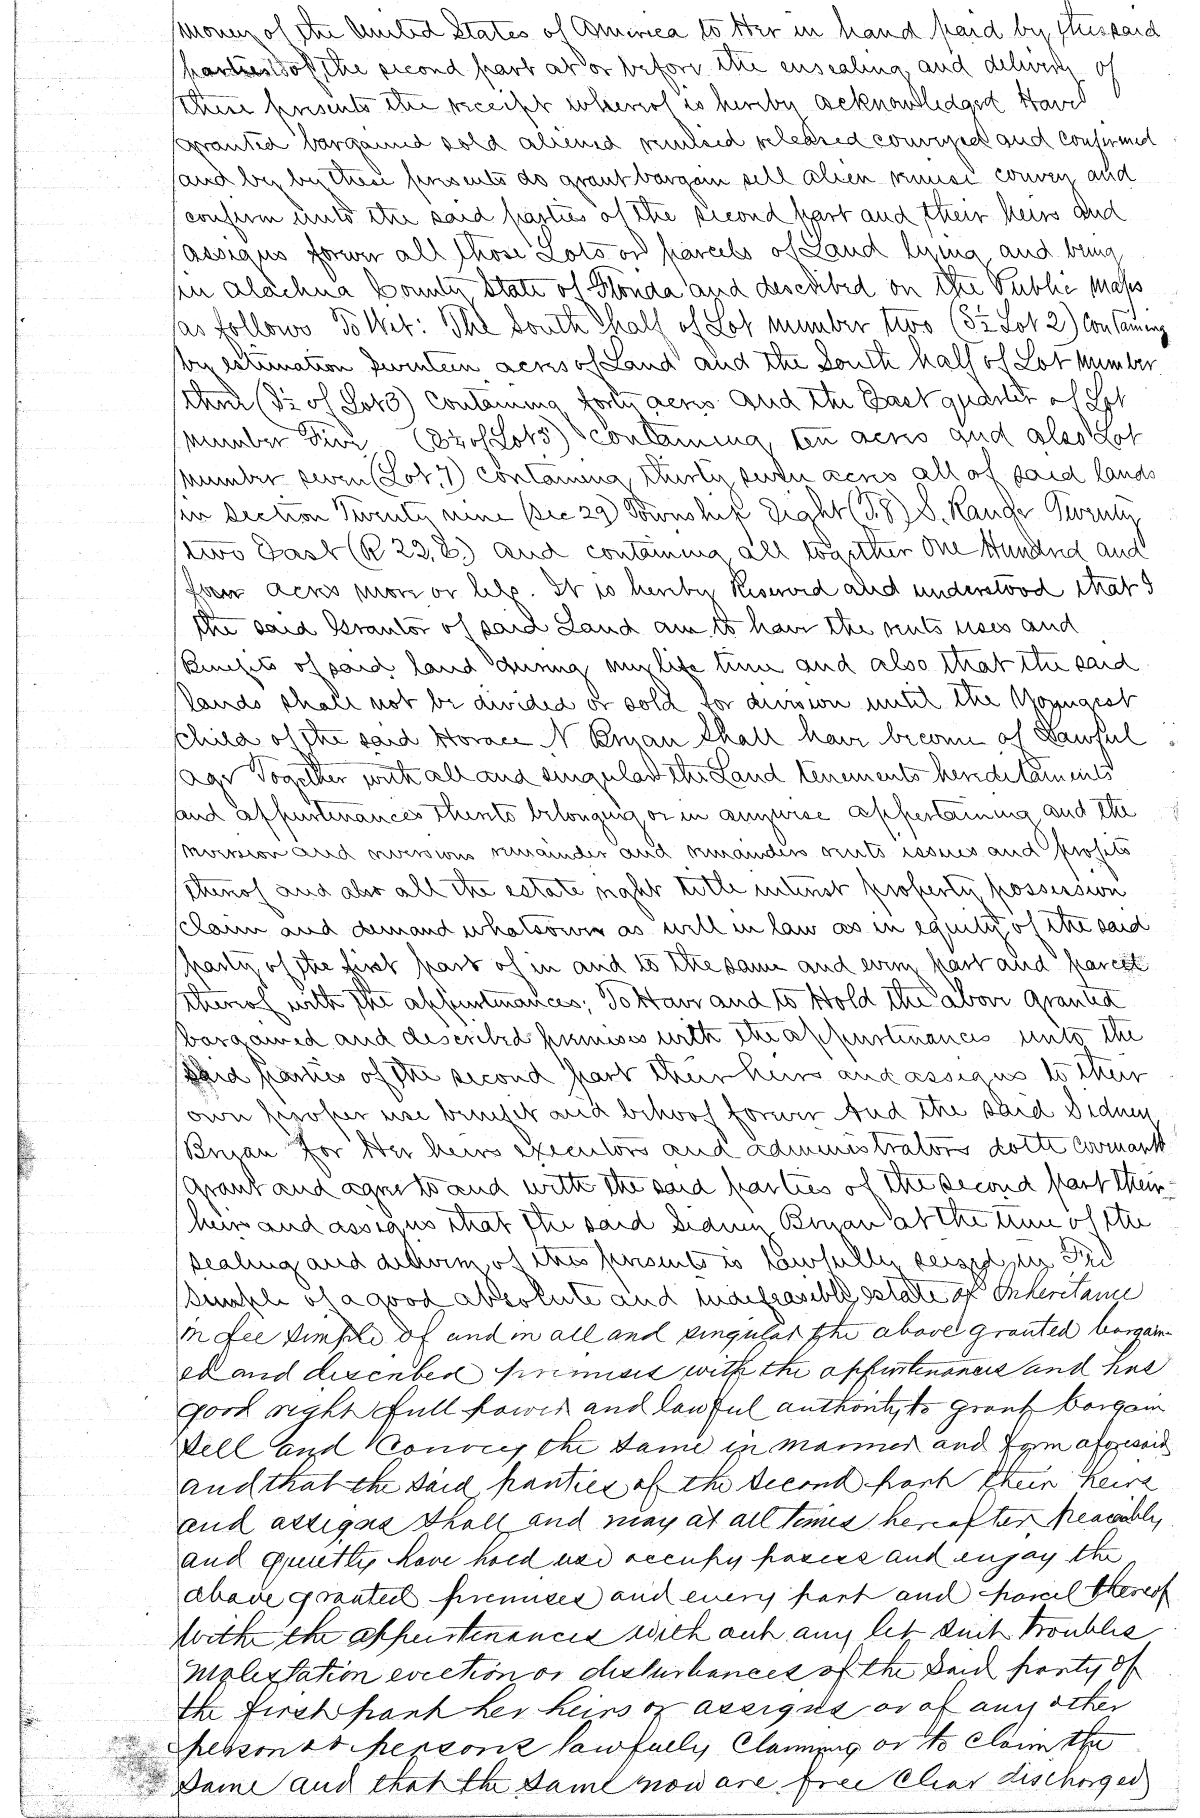 money of the United States of America to Her in hand paid by the said
parties of the second part at or before the ensealing and delivery of
these presents the receipt whereof is hereby acknowledged Have
granted bargained sold aliened remised released conveyed and confirmed
and by by these presents do grant bargain sell alien remise convey and
confirm unto the said parties of the second part and their heirs and
assigns forever all those Lots or parcels of Land lying and being
in Alachua County State of Florida and described on the Public Maps
as follows To Wit: The South half of Lot number two (S½ Lot 2) Containing
by estimation Seventeen acres of Land and the South half of Lot number
three (S½ of Lot 3) Containing forty acres and the East quarter of Lot
number Five (E¼ of Lot 5) containing ten acres and also Lot
number seven (Lot, 7) containing thirty seven acres all of said lands
in Section Twenty nine (Sec 29) Township Eight (T. 8) S. Range Twenty
two East (R 22, E.) and containing all together One Hundred and
four acres more or less. It is hereby Reserved and understood that I
the said Grantor of said Land am to have the rents uses and
Benefits of said land during my life time and also that the said
lands shall not be divided or sold for division until the Youngest
Child of the said Horace N Bryan Shall have become of Lawful
age Together with all and singular the Land tenements hereditaments
and appurtenances thereto belonging or in anywise appertaining and the
reversion and reversions remainder and remainders rents issues and profits
thereof and also all the estate right title interest property possession
claim and demand whatsoever as well in law as in equity of the said
party of the first part of in and to the same and every part and parcel
thereof with the appurtenances; To Have and to Hold the above granted
bargained and described premises with the appurtenances unto the
said parties of the second part their heirs and assigns to their
own proper use benefit and behoof forever And the said Sidney
Bryan for Her heirs executors and administrators doth covenant
Grant and agree to and with the said parties of the second part their
heirs and assigns that the said Sidney Bryan at the time of the
sealing and delivery of this presents is lawfully seized in Fee
Simple of a good absolute and indefeasible estate of Inheritance
in fee simple of and in all and singular the above granted bargain-
ed and described premises with the appurtenances and has
good right full power and lawful authority to grant bargain
Sell and Convey the Same in manner and form aforesaid
and that the Said parties of the Second part their heirs
and assigns Shall and may at all times hereafter Peaceably
and quietly have hold use occupy posess and enjoy the
above granted premises and every part and parcel thereof
with the appurtenances with out any let Suit troubles
molestation eviction or disturbances of the Said party of
the first part her heirs or assigns or of any other
person or persons lawfully Claiming or to claim the
Same and that the Same now are free Clear discharged